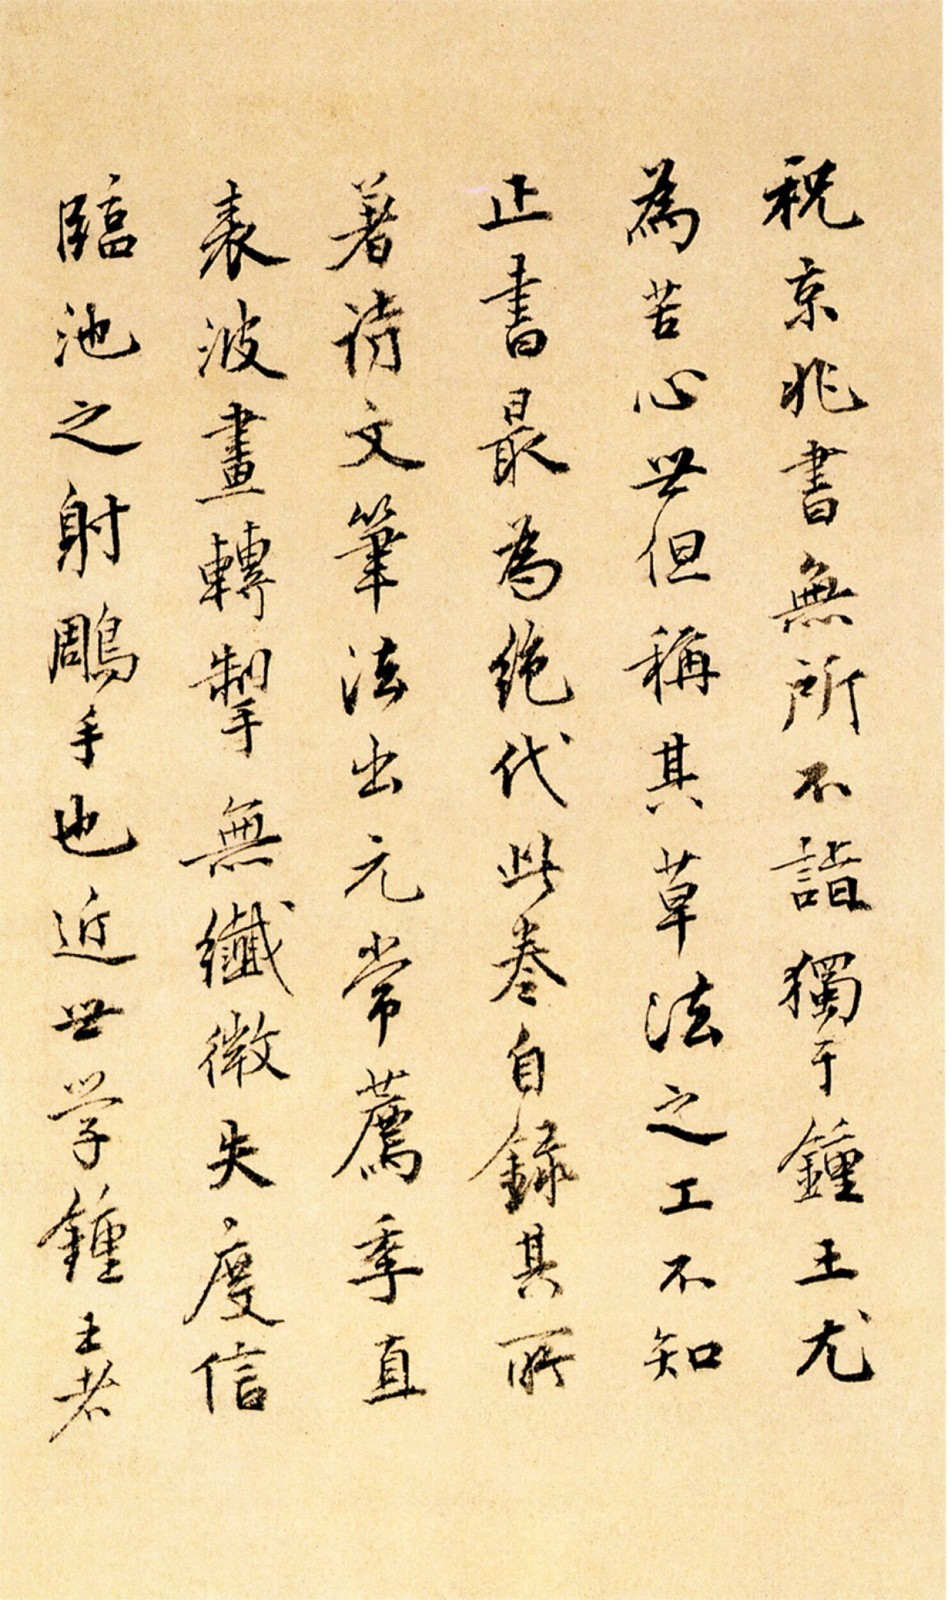 祝京兆書無所不詣獨于鍾王尤
為苦心世但稱其草法之工不知
正書最為絶代此卷自録其所
著詩文筆法出元常薦季直
表波畫轉掣無纖微失度信
臨池之射鵰手也近世学鍾王者